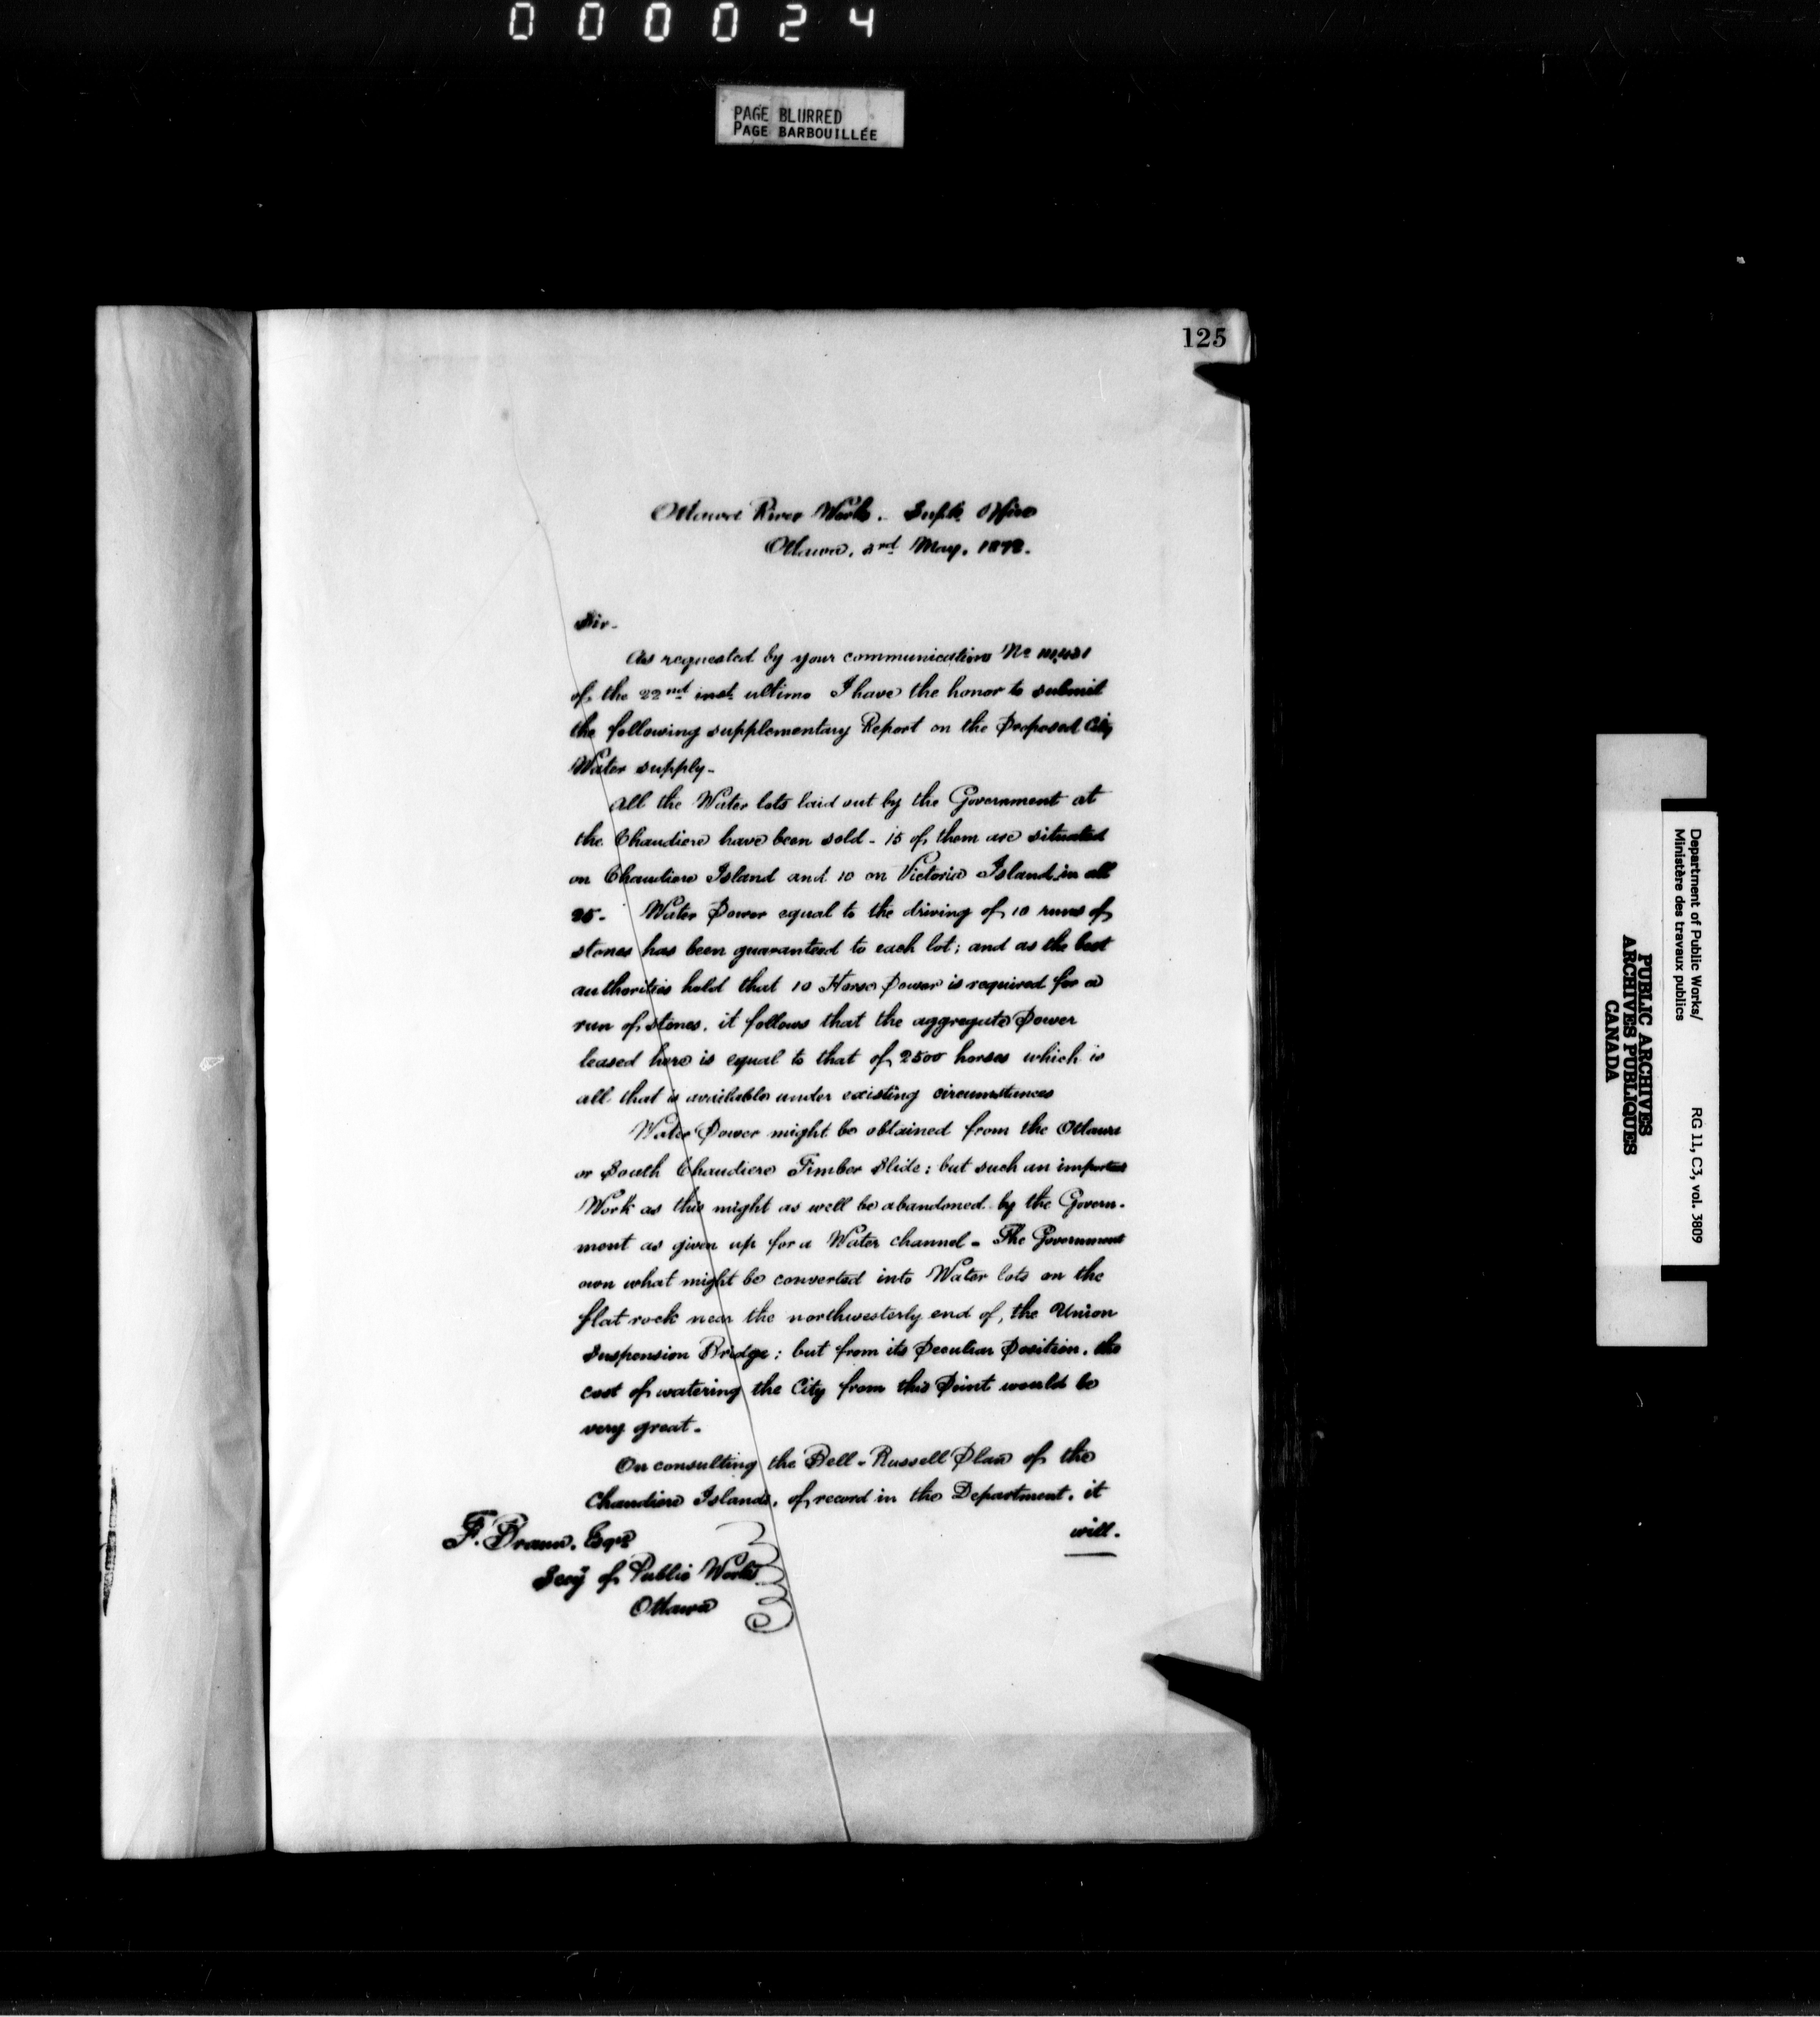 000024
PAGE BLURRED
PAGE BARBOUILLÉE
125
Ottawa River Works. Supts Office
Ottawa, 3rd May. 1872.
Sir-
As requested by your communication No
of the 22nd inst. ultimo I have the honor to submit
the following supplementary Report on the Proposed City
Water supply-
All the Water lots laid out by the Government at
the Chaudiere have been sold - 15 of them are situated
on Chaudiere Island and 10 on Victoria Island in all
25- Water Power equal to the driving of 10 runs of
stones has been guaranteed to each lot; and as the best
authorities hold that 10 Horse Power is required for a
run of stones, it follows that the aggregate Power
leased here is equal to that of 2500 horses which is
all that is available under existing circumstances
Water Power might be obtained from the Ottawa
or South Chaudiere Timber Slide: but such an important
Work as this might as well be abandoned by the Govern-
ment as given up for a Water channel - The Government
own what might be converted into Water lots on the
flat rock near the northwesterly end of, the Union
Suspension Bridge: but from its Peculiar Position, the
cost of watering the City from this Point would be
very great-
On consulting the Bell-Russell Plan of the
Chaudiere Islands, of record in the Department, it
will.
F. Braun, Esqre
Secy of Public Works
Ottawa
Department of Public Works/
Ministère des travaux publics
RG 11, C3, vol. 3809
PUBLIC ARCHIVES
ARCHIVES PUBLIQUES
CANADA